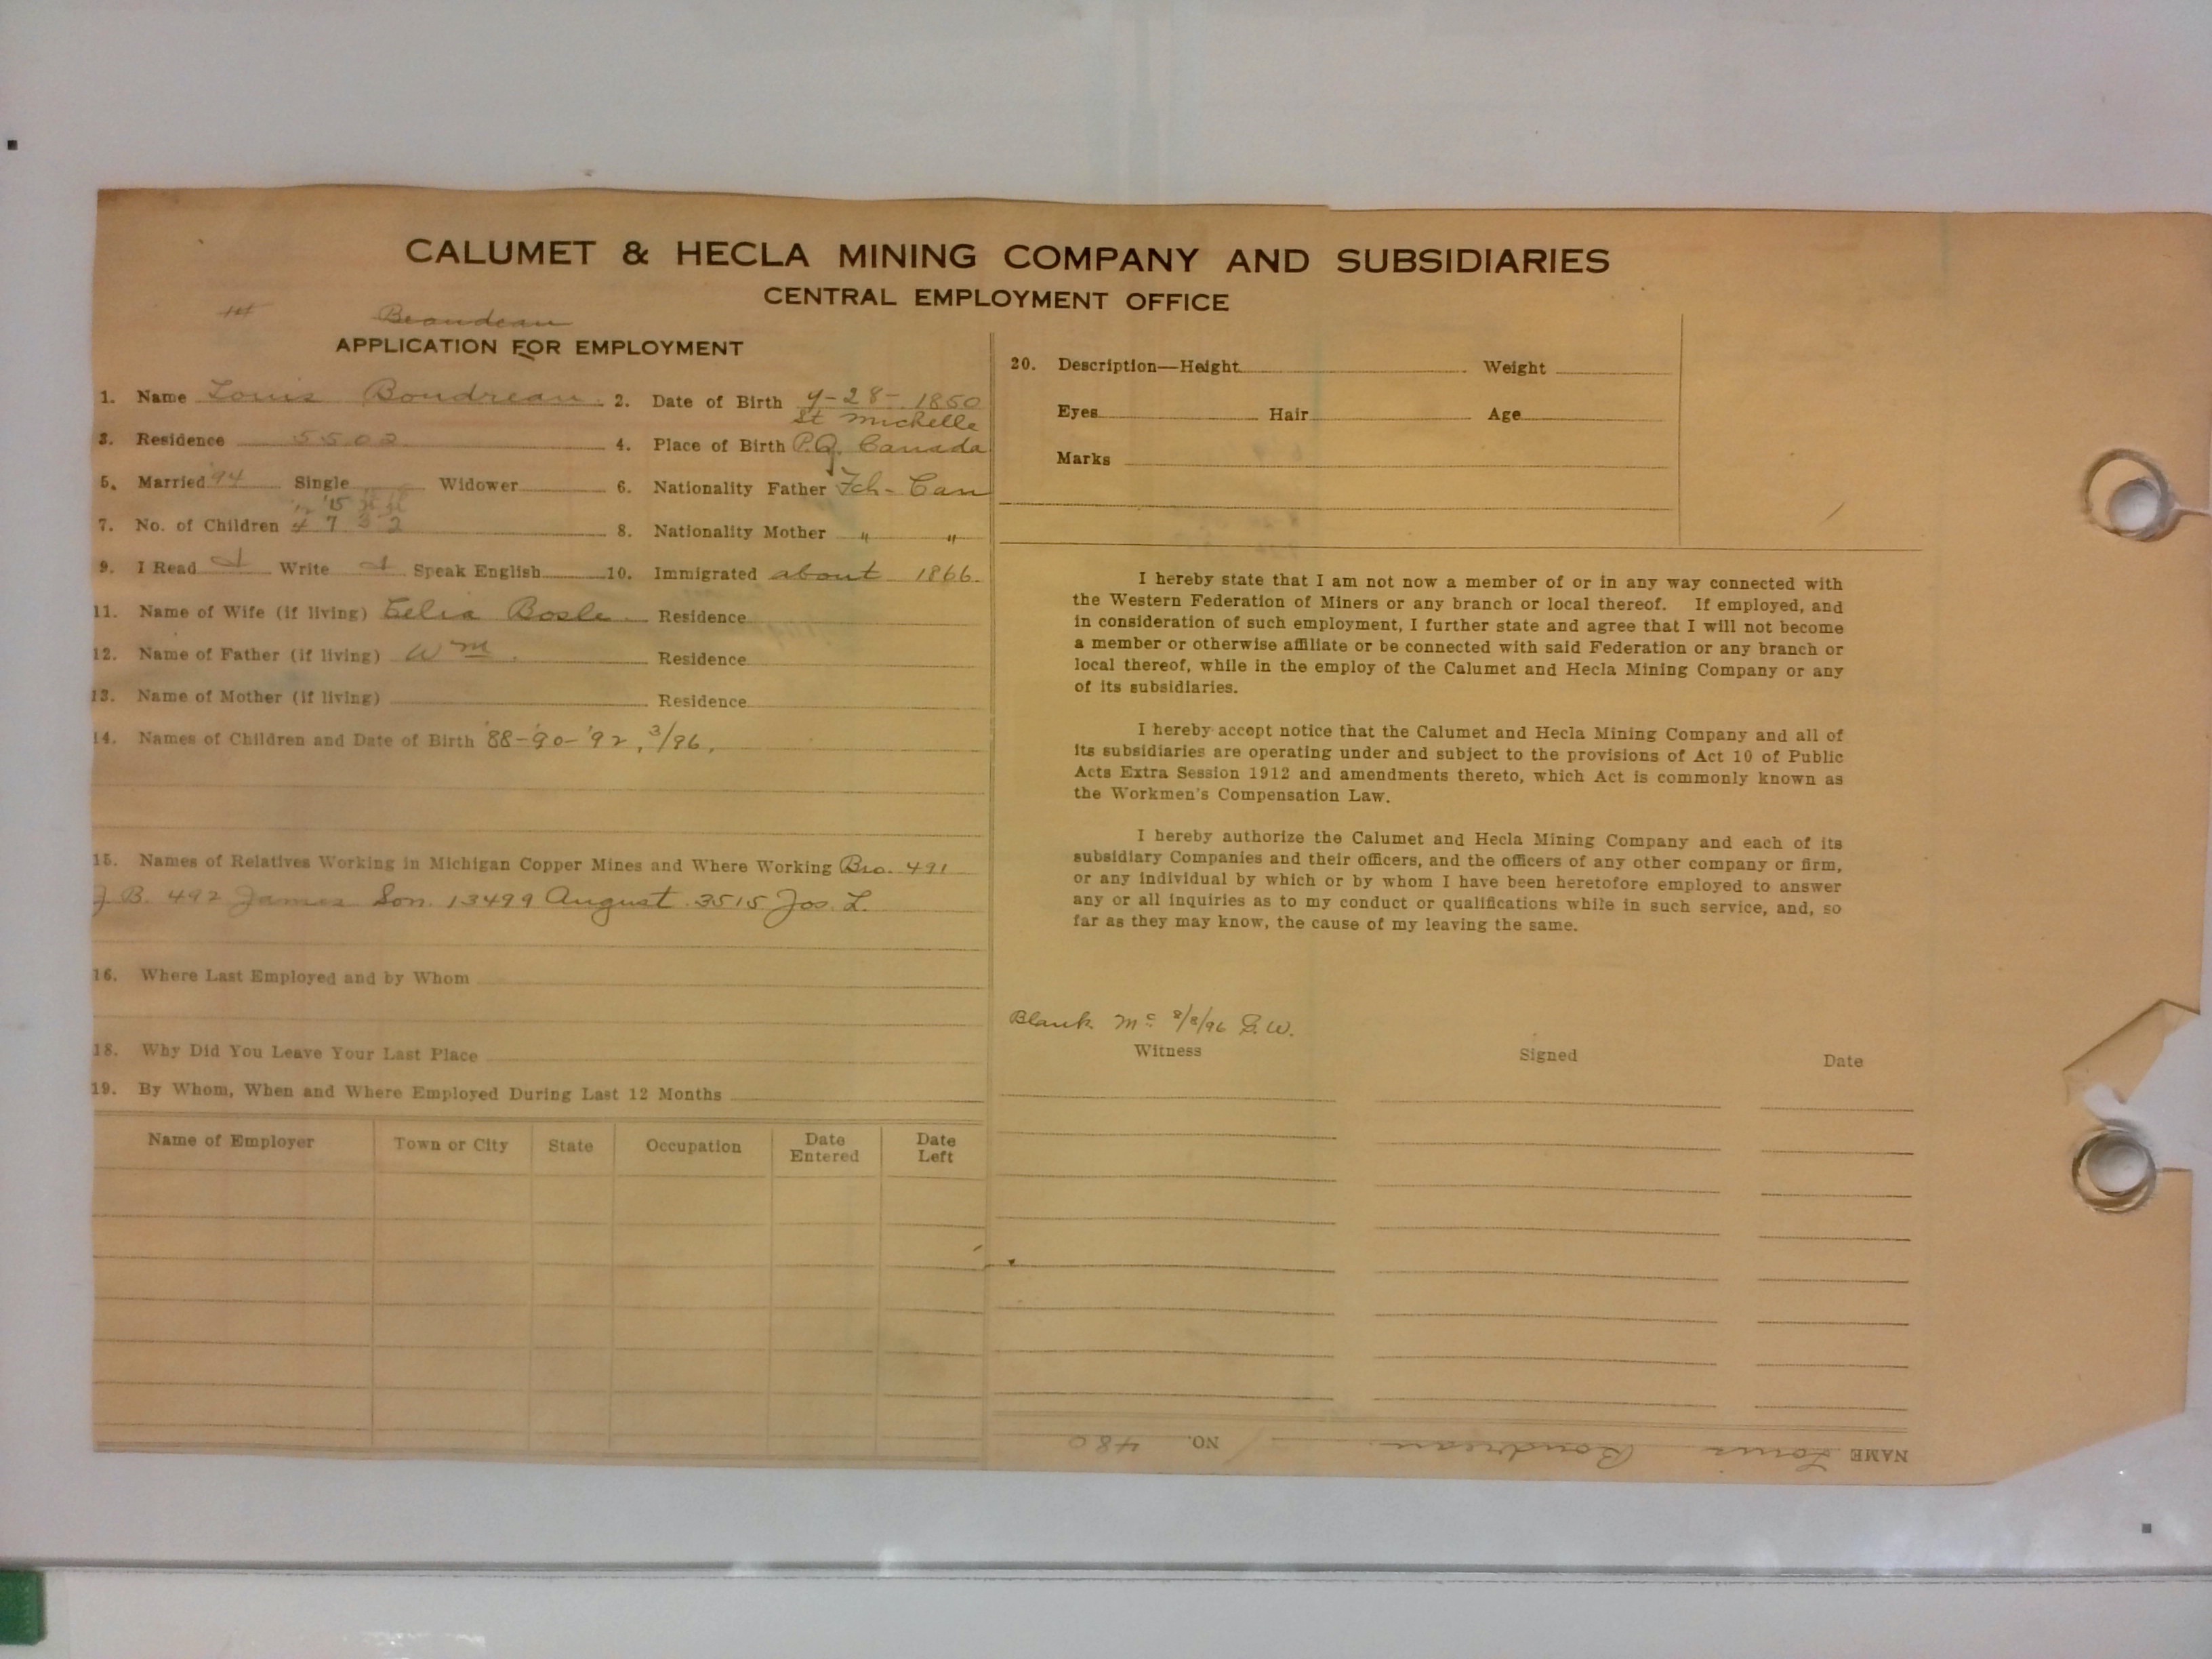 CALUMET & HECLA MINING COMPANY AND SUBSIDIARIES
CENTRAL EMPLOYMENT OFFICE
Beaudeau
APPLICATION FOR EMPLOYMENT
1. Name Louis Boudreau 2. Date of Birth 9-28-1850
St Michelle
3. Residence 5502 4. Place of Birth P.Q. Canada
5. Married '94 Single Widower 6. Nationality Father Fch-Can
'15
7. No. of Children 4 7 3 2 8. Nationality Mother " "
9. I Read Write Speak English 10. Immigrated about 1866.
11. Name of Wife (if living) Celia Bosle Residence
12. Name of Father (if living) Wm Residence
13. Name of Mother (if living) Residence
14. Names of Children and Date of Birth '88-'90-'92, 3/96,
15. Names of Relatives Working in Michigan Copper Mines and Where Working Bro. 491
J. B. 492 James Son. 13499 August 3515 Jos. L.
16. Where Last Employed and by Whom
18. Why Did You Leave Your Last Place
19. By Whom, When and Where Employed During Last 12 Months
Name of Employer Town or City State Occupation Date Entered Date Left
20. Description—Height Weight
Eyes Hair Age
Marks
I hereby state that I am not now a member of or in any way connected with
the Western Federation of Miners or any branch or local thereof. If employed, and
in consideration of such employment, I further state and agree that I will not become
a member or otherwise affiliate or be connected with said Federation or any branch or
local thereof, while in the employ of the Calumet and Hecla Mining Company or any
of its subsidiaries.
I hereby accept notice that the Calumet and Hecla Mining Company and all of
its subsidiaries are operating under and subject to the provisions of Act 10 of Public
Acts Extra Session 1912 and amendments thereto, which Act is commonly known as
the Workmen's Compensation Law.
I hereby authorize the Calumet and Hecla Mining Company and each of its
subsidiary Companies and their officers, and the officers of any other company or firm,
or any individual by which or by whom I have been heretofore employed to answer
any or all inquiries as to my conduct or qualifications while in such service, and, so
far as they may know, the cause of my leaving the same.
Blank Mc 8/8/96 G.W.
Witness Signed Date
NAME Louis Boudreau NO. 480